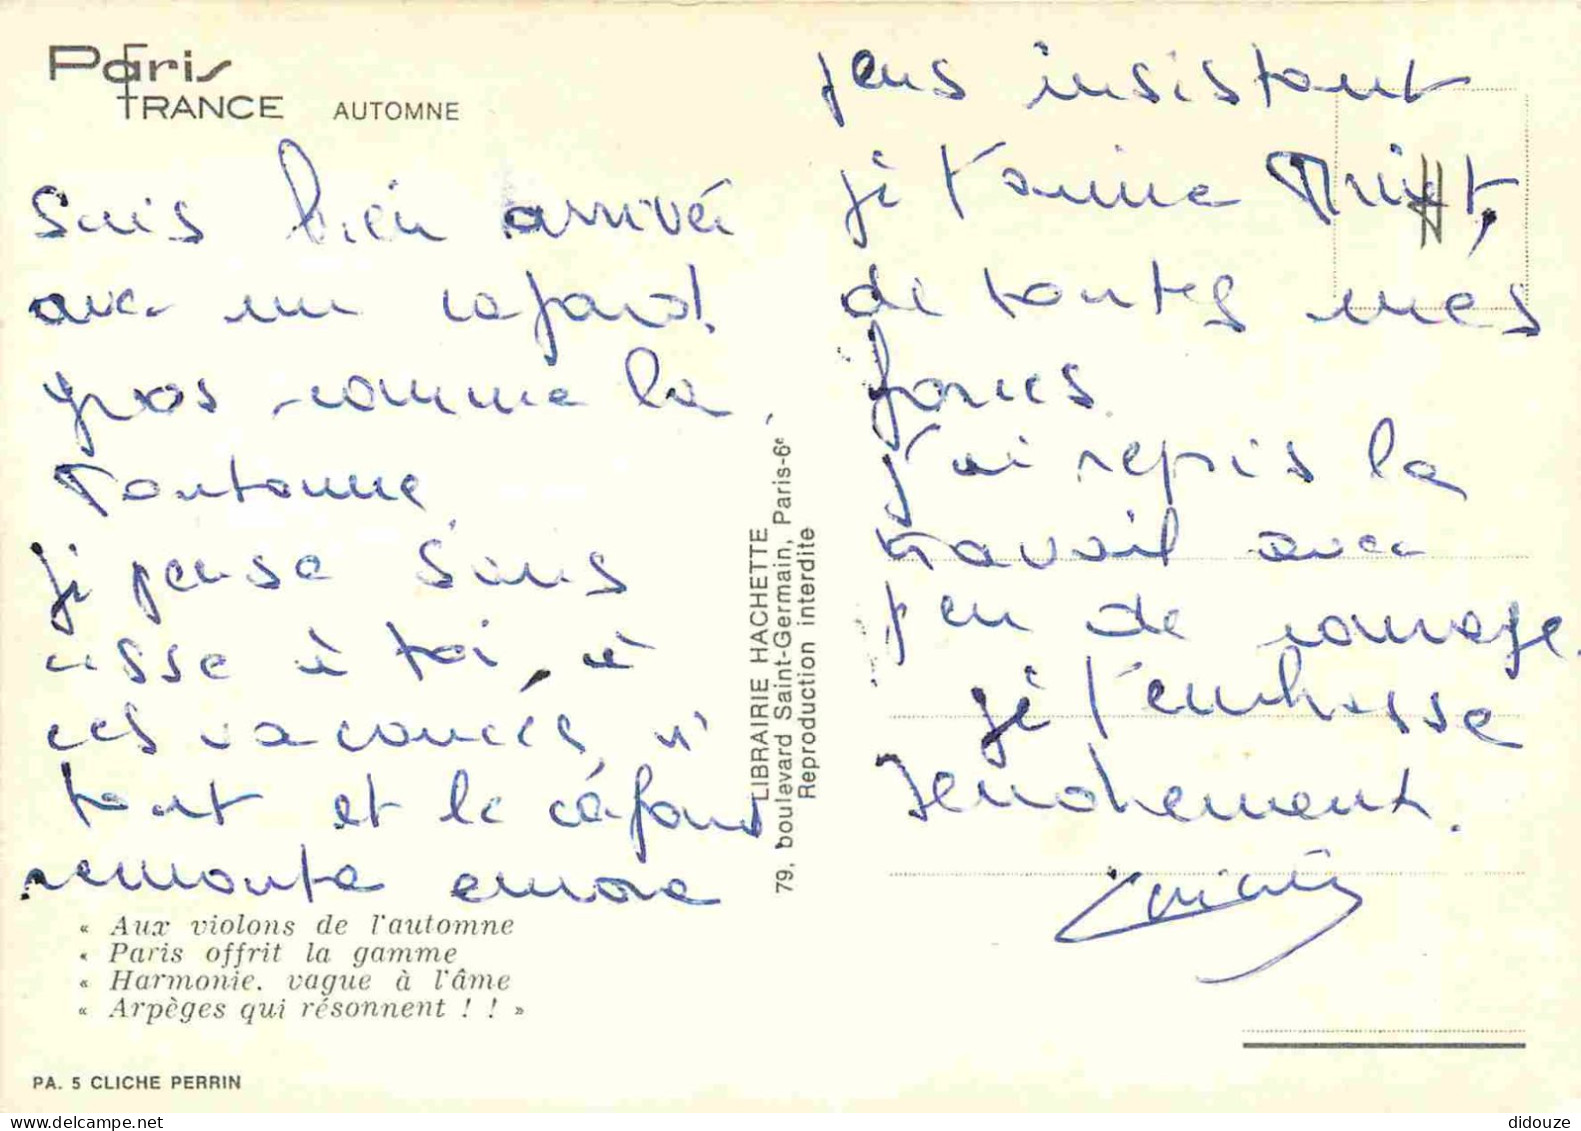 Paris
FRANCE AUTOMNE
Suis bien arrivé
avec un cafard
gros comme la
Fontonne
je pense sans
cesse à toi, à
ces vacances
tout et le cafard
remonte encore
« Aux violons de l'automne
« Paris offrit la gamme
« Harmonie. vague à l'âme
« Arpèges qui résonnent ! ! »
PA. 5 CLICHE PERRIN
LIBRAIRIE HACHETTE
79, boulevard Saint-Germain, Paris-6e
Reproduction interdite
insistant
je t'aime
de toutes mes
forces
j'ai repris la
travail avec
peu de courage
je t'embrasse
tendrement.
didouze